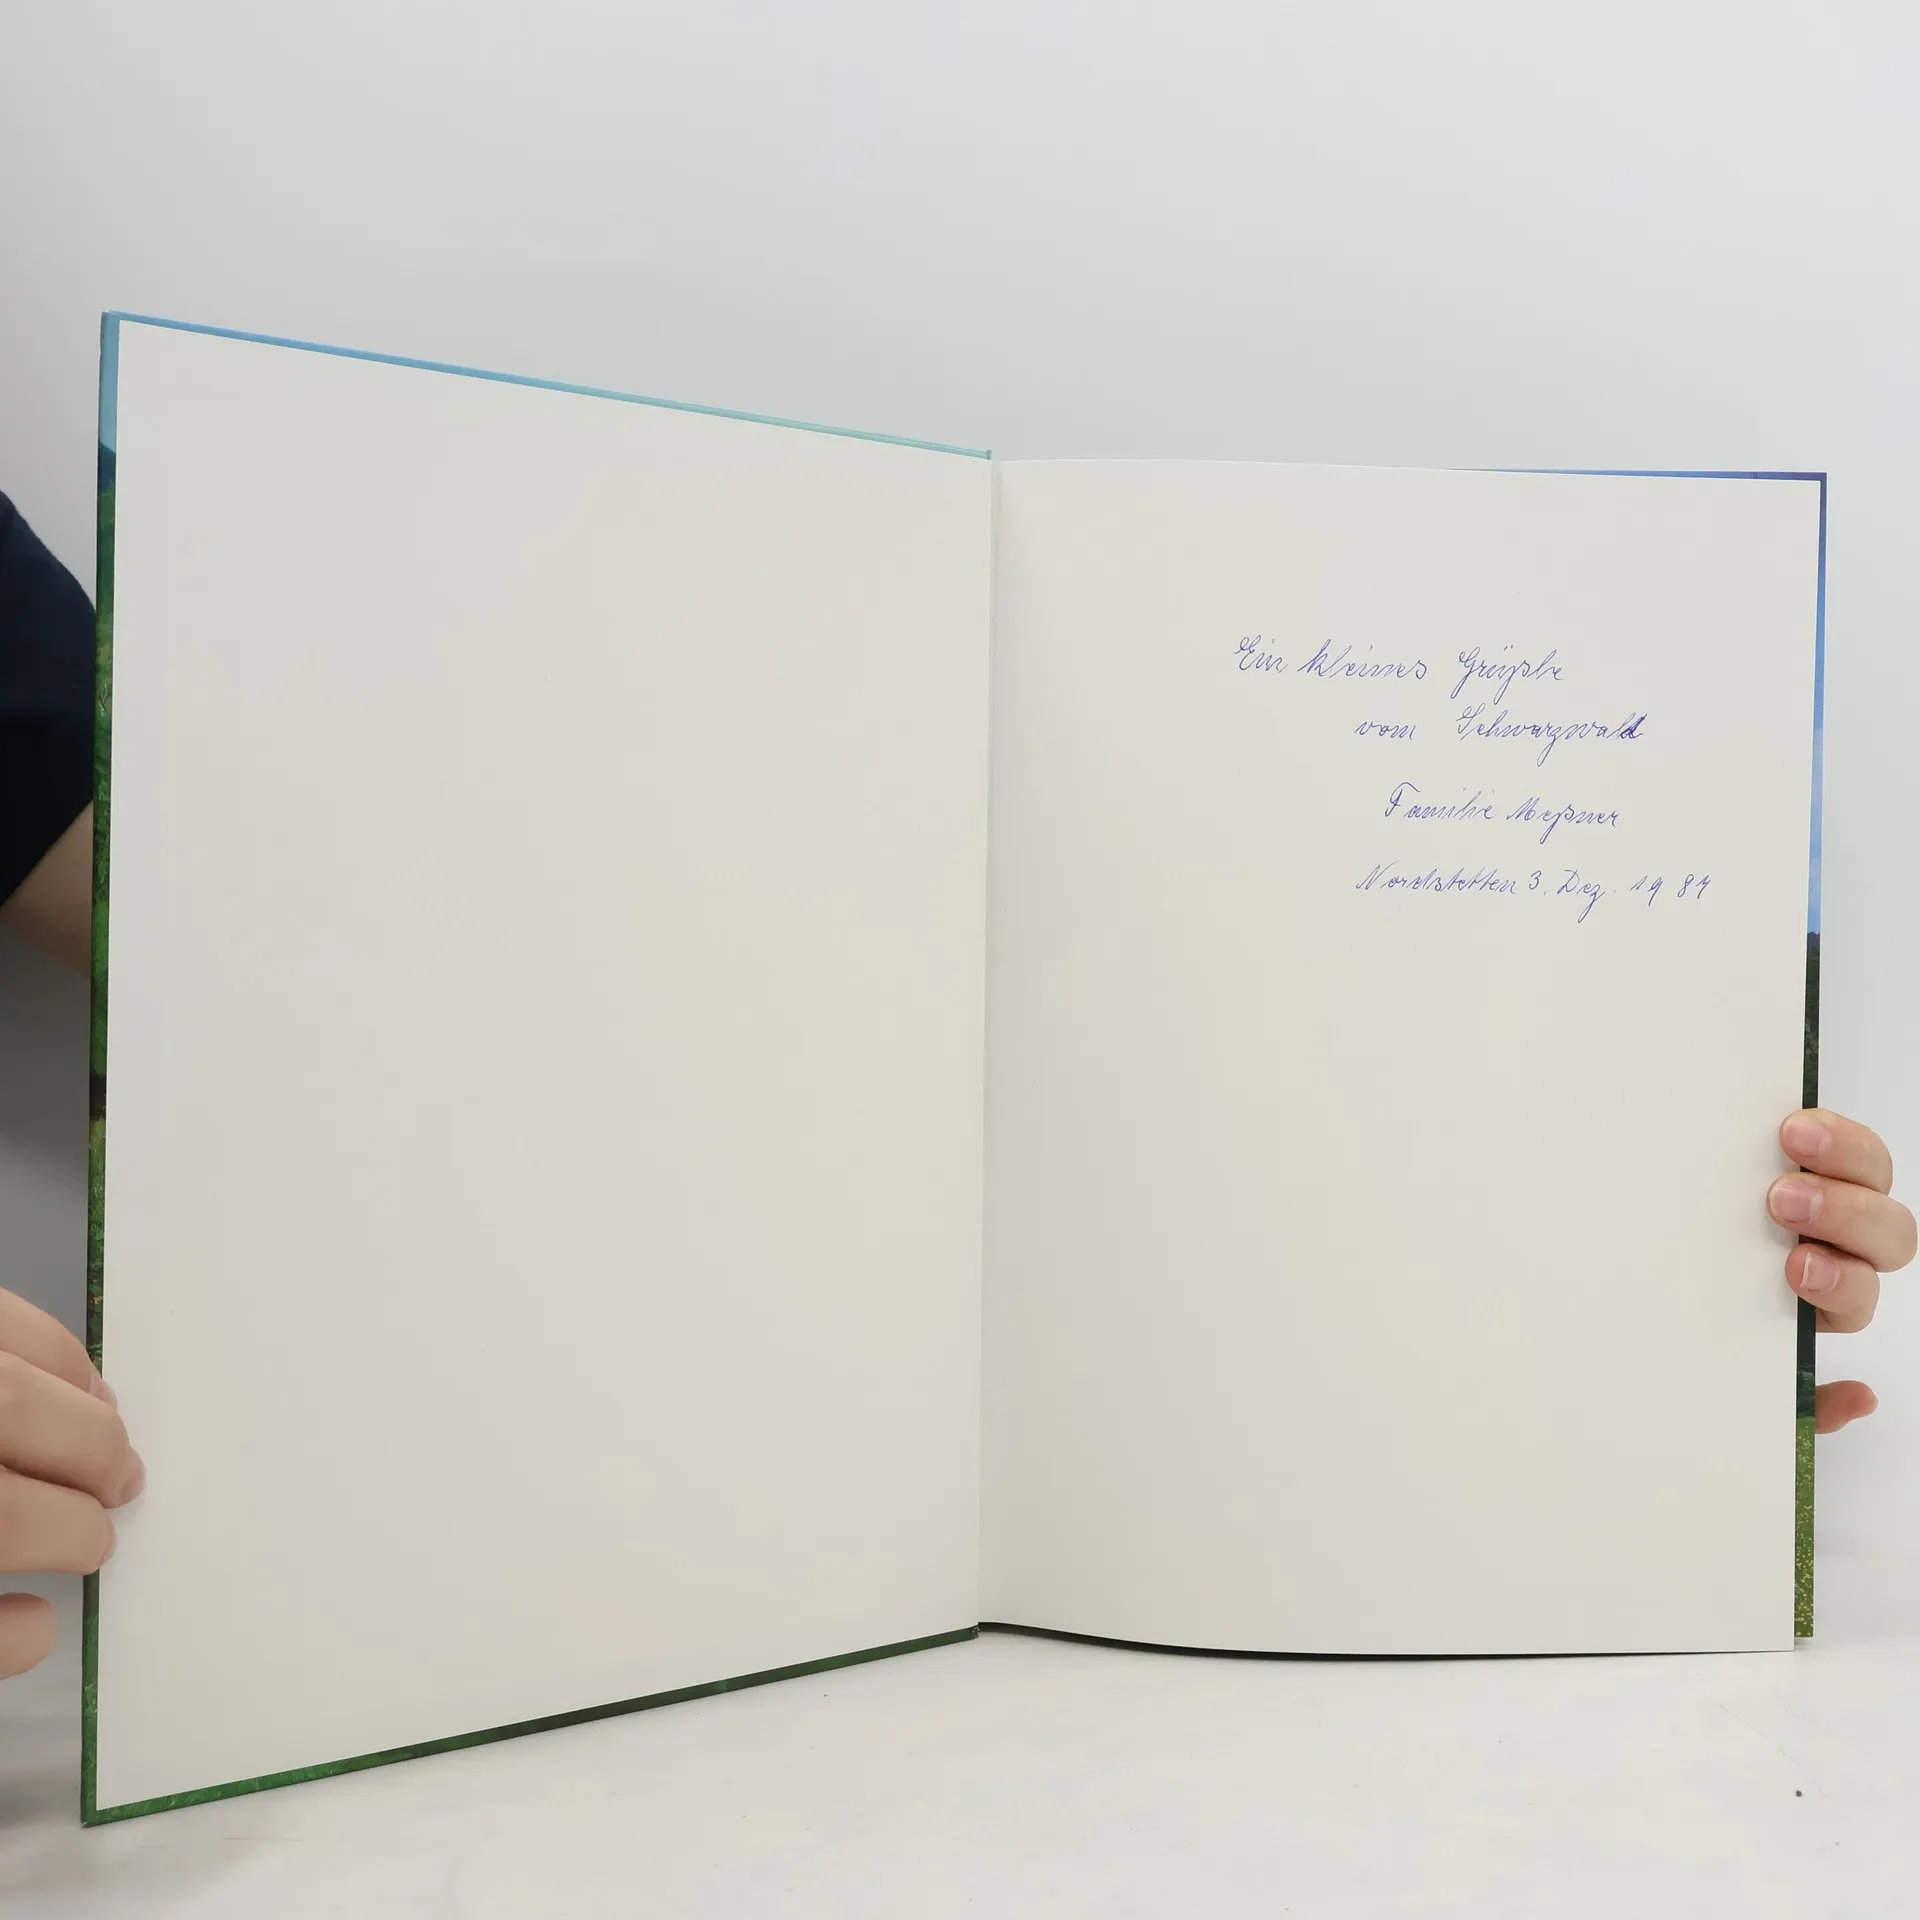 Ein kleines Grüßle
vom Schwarzwald
Familie Meßner
Nordstetten 3. Dez. 1984